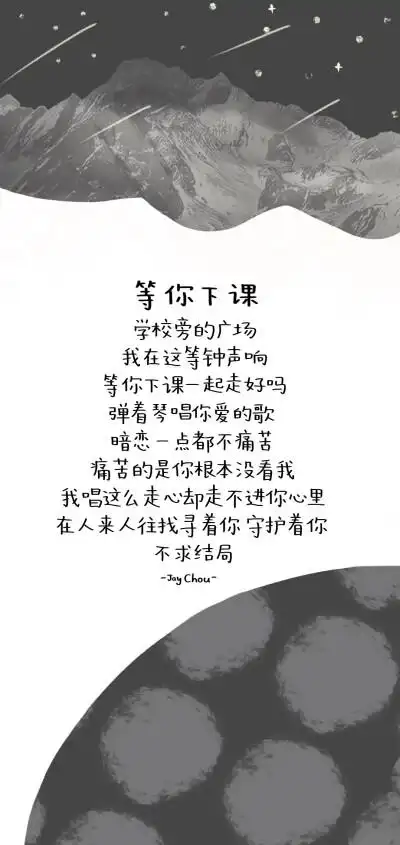 等你下课
学校旁的广场
我在这等钟声响
等你下课一起走好吗
弹着琴唱你爱的歌
暗恋一点都不痛苦
痛苦的是你根本没看我
我唱这么走心却走不进你心里
在人来人往找寻着你 守护着你
不求结局
-Jay Chou-